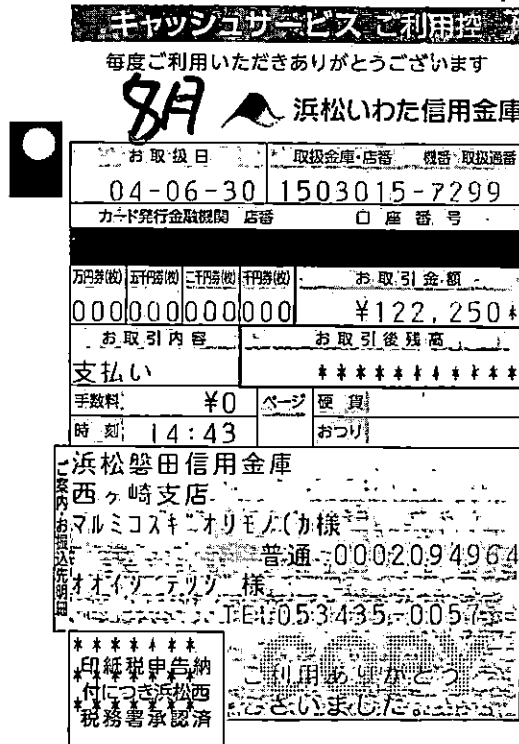 キャッシュサービス ご利用控
毎度ご利用いただきありがとうございます
8月
浜松いわた信用金庫
お取扱日 取扱金庫・店番 機番 取扱通番
04-06-30 1503015-7299
カード発行金融機関 店番 口座番号
万円券(枚) 五千円券(枚) 二千円券(枚) 千円券(枚) お取引金額
000 000 000 000 ¥122,250*
お取引内容 お取引後残高
支払い **********
手数料 ¥0 ページ 硬貨
時刻 14:43 おつり
ご案内・お振込先明細
浜松磐田信用金庫
西ヶ崎支店
マルミコスギオリモノ(カ様
普通 0002094964
オオイソ テツジ 様
TEL053435-0057
*******
印紙税申告納
付につき浜松西
税務署承認済
COPY
ご利用ありがとう
ございました。